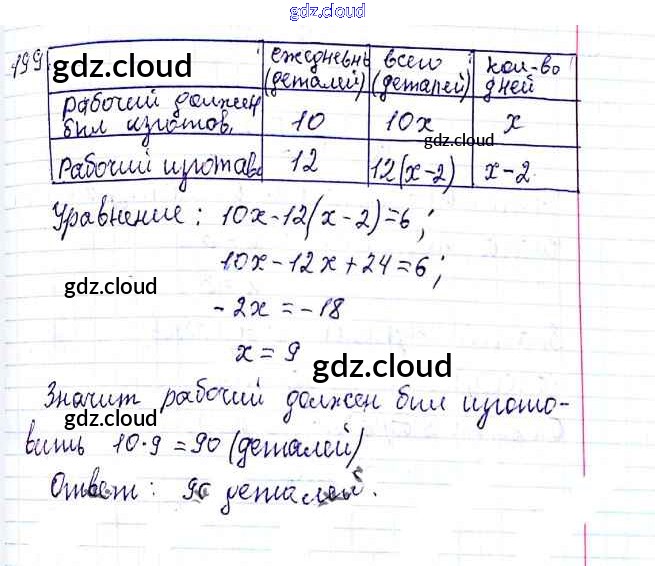 gdz.cloud
gdz.cloud
199
gdz.cloud
ежедневн (деталей)
всего (деталей)
кол-во дней
рабочий должен был изготов.
10
10x
x
gdz.cloud
Рабочий изготав.
12
12(x-2)
x-2
Уравнение: 10x-12(x-2)=6;
10x-12x+24=6;
gdz.cloud
-2x=-18
x=9
gdz.cloud
Значит рабочий должен был изгото-
gdz.cloud
вить 10·9=90 (деталей)
Ответ: 90 деталей.